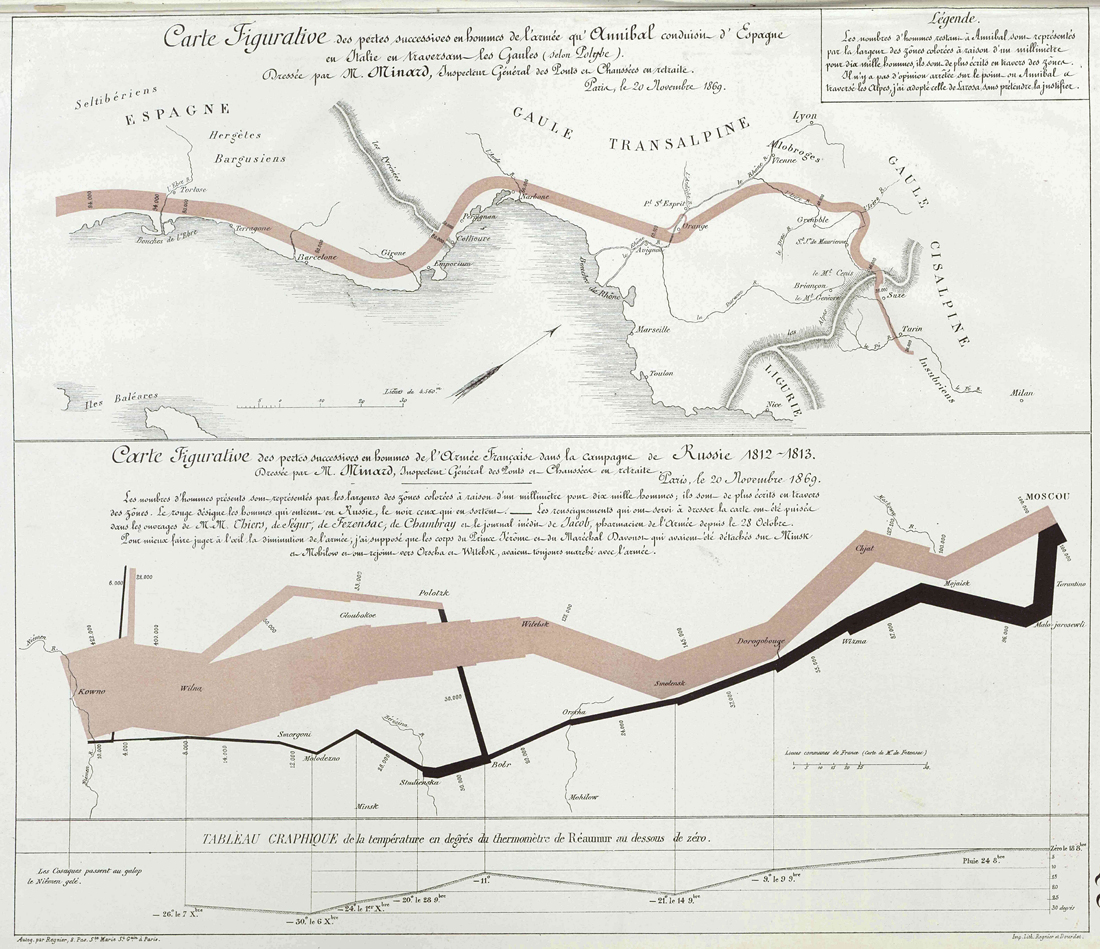 Carte Figurative des pertes successives en hommes de l'armée qu'Annibal conduisit d'Espagne
en Italie en traversant les Gaules (selon Polybe).
Dressée par M. Minard, Inspecteur Général des Ponts et Chaussées en retraite.
Paris, le 20 Novembre 1869.
Légende.
Les nombres d'hommes restant à Annibal sont représentés
par la largeur des zônes colorées à raison d'un millimètre
pour dix mille hommes, ils sont de plus écrits en travers des zônes.
Il n'y a pas d'opinion arrêtée sur le point où Annibal a
traversé les Alpes, j'ai adopté celle de Larosa sans prétendre la justifier.
Seltibériens
ESPAGNE
Hergètes
Bargusiens
GAULE TRANSALPINE
GAULE CISALPINE
LIGURIE
les Pyrénées
l'Ebre R.
Tortose
Bouches de l'Ebre
Terragone
Barcelone
Girone
Emporium
Collioure
Perpignan
Narbone
l'Aude
Pt. St. Esprit
Orange
Avignon
Bouches du Rhône
Marseille
Toulon
Nice
Lyon
Allobroges
Vienne
le Rhône R.
l'Isère R.
Grenoble
St. Jn. de Maurienne
le Mt. Cenis
Briançon
le Mt. Genèvre
les Alpes
Suze
Turin
le Pô
Insubriens
le Pô R.
Milan
la Durance
Iles Baléares
Lieues de 4.560m
Carte Figurative des pertes successives en hommes de l'Armée Française dans la campagne de Russie 1812-1813.
Dressée par M. Minard, Inspecteur Général des Ponts et Chaussées en retraite.
Paris, le 20 Novembre 1869.
Les nombres d'hommes présents sont représentés par les largeurs des zônes colorées à raison d'un millimètre pour dix mille hommes; ils sont de plus écrits en travers
des zônes. Le rouge désigne les hommes qui entrent en Russie, le noir ceux qui en sortent. — Les renseignements qui ont servi à dresser la carte ont été puisés
dans les ouvrages de M.M. Thiers, de Ségur, de Fezensac, de Chambray et le journal inédit de Jacob, pharmacien de l'Armée depuis le 28 Octobre.
Pour mieux faire juger à l'œil la diminution de l'armée, j'ai supposé que les corps du Prince Jérôme et du Maréchal Davoust qui avaient été détachés sur Minsk
et Mohilow et ont rejoint vers Orscha et Witebsk, avaient toujours marché avec l'armée.
Niémen R.
Kowno
Wilna
422.000
400.000
6.000
22.000
60.000
33.000
Gloubokoe
Polotzk
Witebsk
175.000
Smolensk
145.000
Dorogobouge
Chjat
127.100
Mojaisk
100.000
MOSCOU
100.000
100.000
Tarantino
Malo-jarosewli
96.000
87.000
Wizma
55.000
37.000
24.000
Orscha
Mohilow
20.000
Bobr
30.000
50.000
Studienska
Bérézina R.
28.000
Minsk
12.000
Molodezno
Smorgoni
14.000
8.000
4.000
10.000
Niémen R.
Lieues communes de France (Carte de M. de Fezensac)
TABLEAU GRAPHIQUE de la température en degrés du thermomètre de Réaumur au dessous de zéro.
Les Cosaques passent au galop
le Niémen gelé.
— 26.° le 7 Xbre
— 30.° le 6 Xbre
— 24.° le 1er Xbre
— 20.° le 28 9bre
— 11.°
— 21.° le 14 9bre
— 9.° le 9 9bre
Pluie 24 8bre
Zéro le 18 8bre
5
10
15
20
25
30 degrés
Autog. par Regnier, 8. Pas. Ste Marie St Gain à Paris.
Imp. Lith. Regnier et Dourdet.